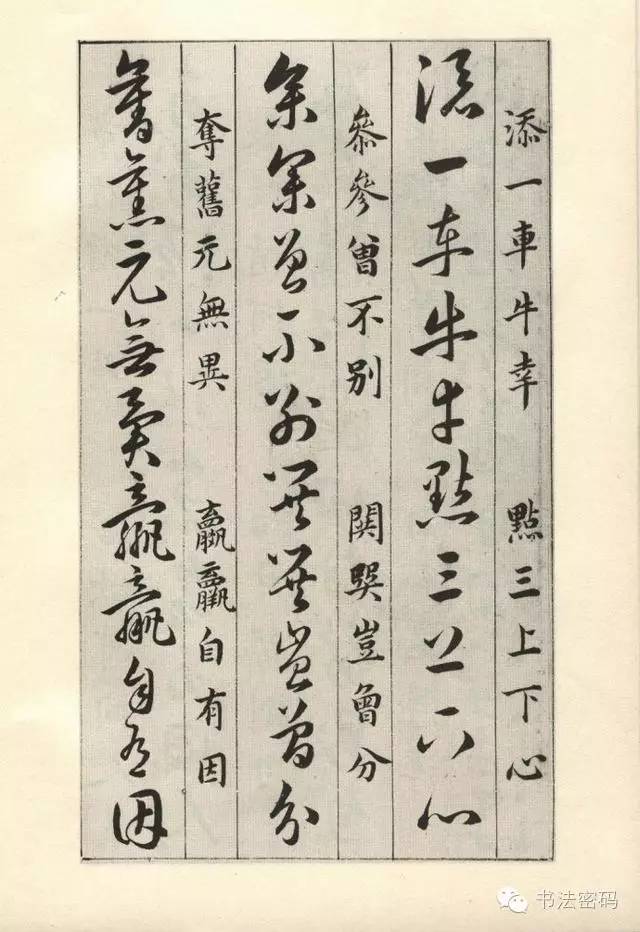 添一車牛幸 點三上下心
添一車牛幸點三上下心
叅參曾不別 豈曾分
叅參曾不別豈曾分
奪舊元無異 羸贏自有因
奪舊元無異羸贏自有因
书法密码